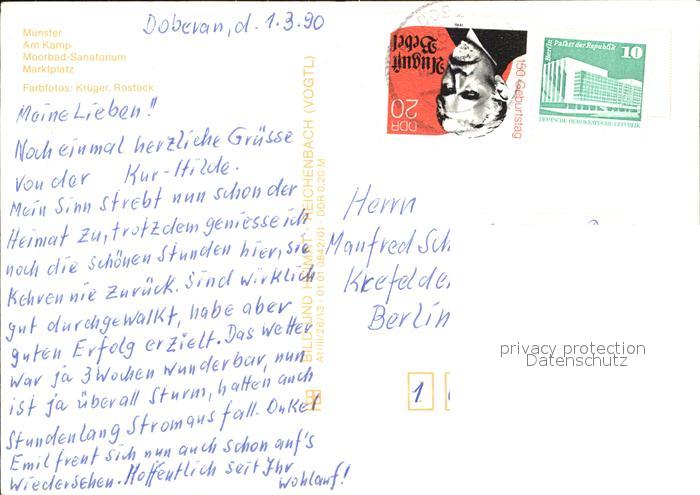 Münster
Am Kamp
Moorbad-Sanatorium
Marktplatz
Farbfotos: Krüger, Rostock
Doberan, d. 1.3.90
Meine Lieben!!
Noch einmal herzliche Grüsse
von der Kur-Hilde.
Mein Sinn strebt nun schon der
Heimat zu, trotzdem geniesse ich
noch die schönen Stunden hier, sie
kehren nie zurück. Sind wirklich
gut durchgewalkt, habe aber
guten Erfolg erzielt. Das Wetter
war ja 3 Wochen wunderbar, nun
ist ja überall Sturm, hatten auch
stundenlang Stromausfall. Onkel
Emil freut sich nun auch schon auf's
Wiedersehen. Hoffentlich seit Ihr
wohlauf!
BILD UND HEIMAT REICHENBACH (VOGTL)
A1/III/26/13 01 01 0842/01 DDR 0,20 M
150. Geburtstag
August Bebel
DDR
20
Berlin Palast der Republik
10
DEUTSCHE DEMOKRATISCHE REPUBLIK
Herrn
Manfred Sch
Krefelde
Berlin
1
privacy protection
Datenschutz